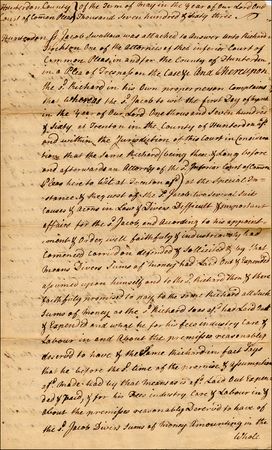 Hunterdon County of the Term of may in the Year of our Lord One
Thousand Seven hundred & Sixty three.
Hunterdon ss. Jacob Swallow was attached to Answer unto Richard
Stockton One of the Attorneys of the Inferior Court of
Common Pleas in and for the County of Hunterdon
in a Plea of Trespass on the Case & And Whereupon
the sd. Richard in his own proper person Complains
that Whereas the sd. Jacob to wit the first Day of
in the Year of our Lord One thousand and Seven hundred
& Sixty at Trenton in the County of Hunterdon afsd
and within the Jurisdiction of this Court in Consideration
that the Same Richard (being then & Long before
and afterwards an Attorney of the sd. Inferior Court of Common
Pleas here to wit at Trenton afsd) at the Special Instance
& Request of the sd. Jacob had several Suits
Causes & Actions in Law & Divers Difficult & important
affairs for the sd. Jacob, and According to his
& Order, well faithfully & industriously had
carried on defended & Sollicited & by that
Means Divers Sums of money had Laid Out & Expended
assumed upon himself and to the sd. Richard then & there
faithfully promised to pay to the Same Richard all Such
Sums of money as the sd. Richard so as afsd. had Laid Out
& Expended and what he for his fees industry Care &
Labour in and About the premises reasonably
deserved to have & the Same Richard in fact Says
that he before the sd. time of the promise & assumption
afsd. made had by that Means as is afsd. Laid Out Expended
& paid, & for his Fees industry Care & Labour in &
about the premises reasonably Deserved to have of
the sd. Jacob Divers Sums of money Amounting in the
Whole